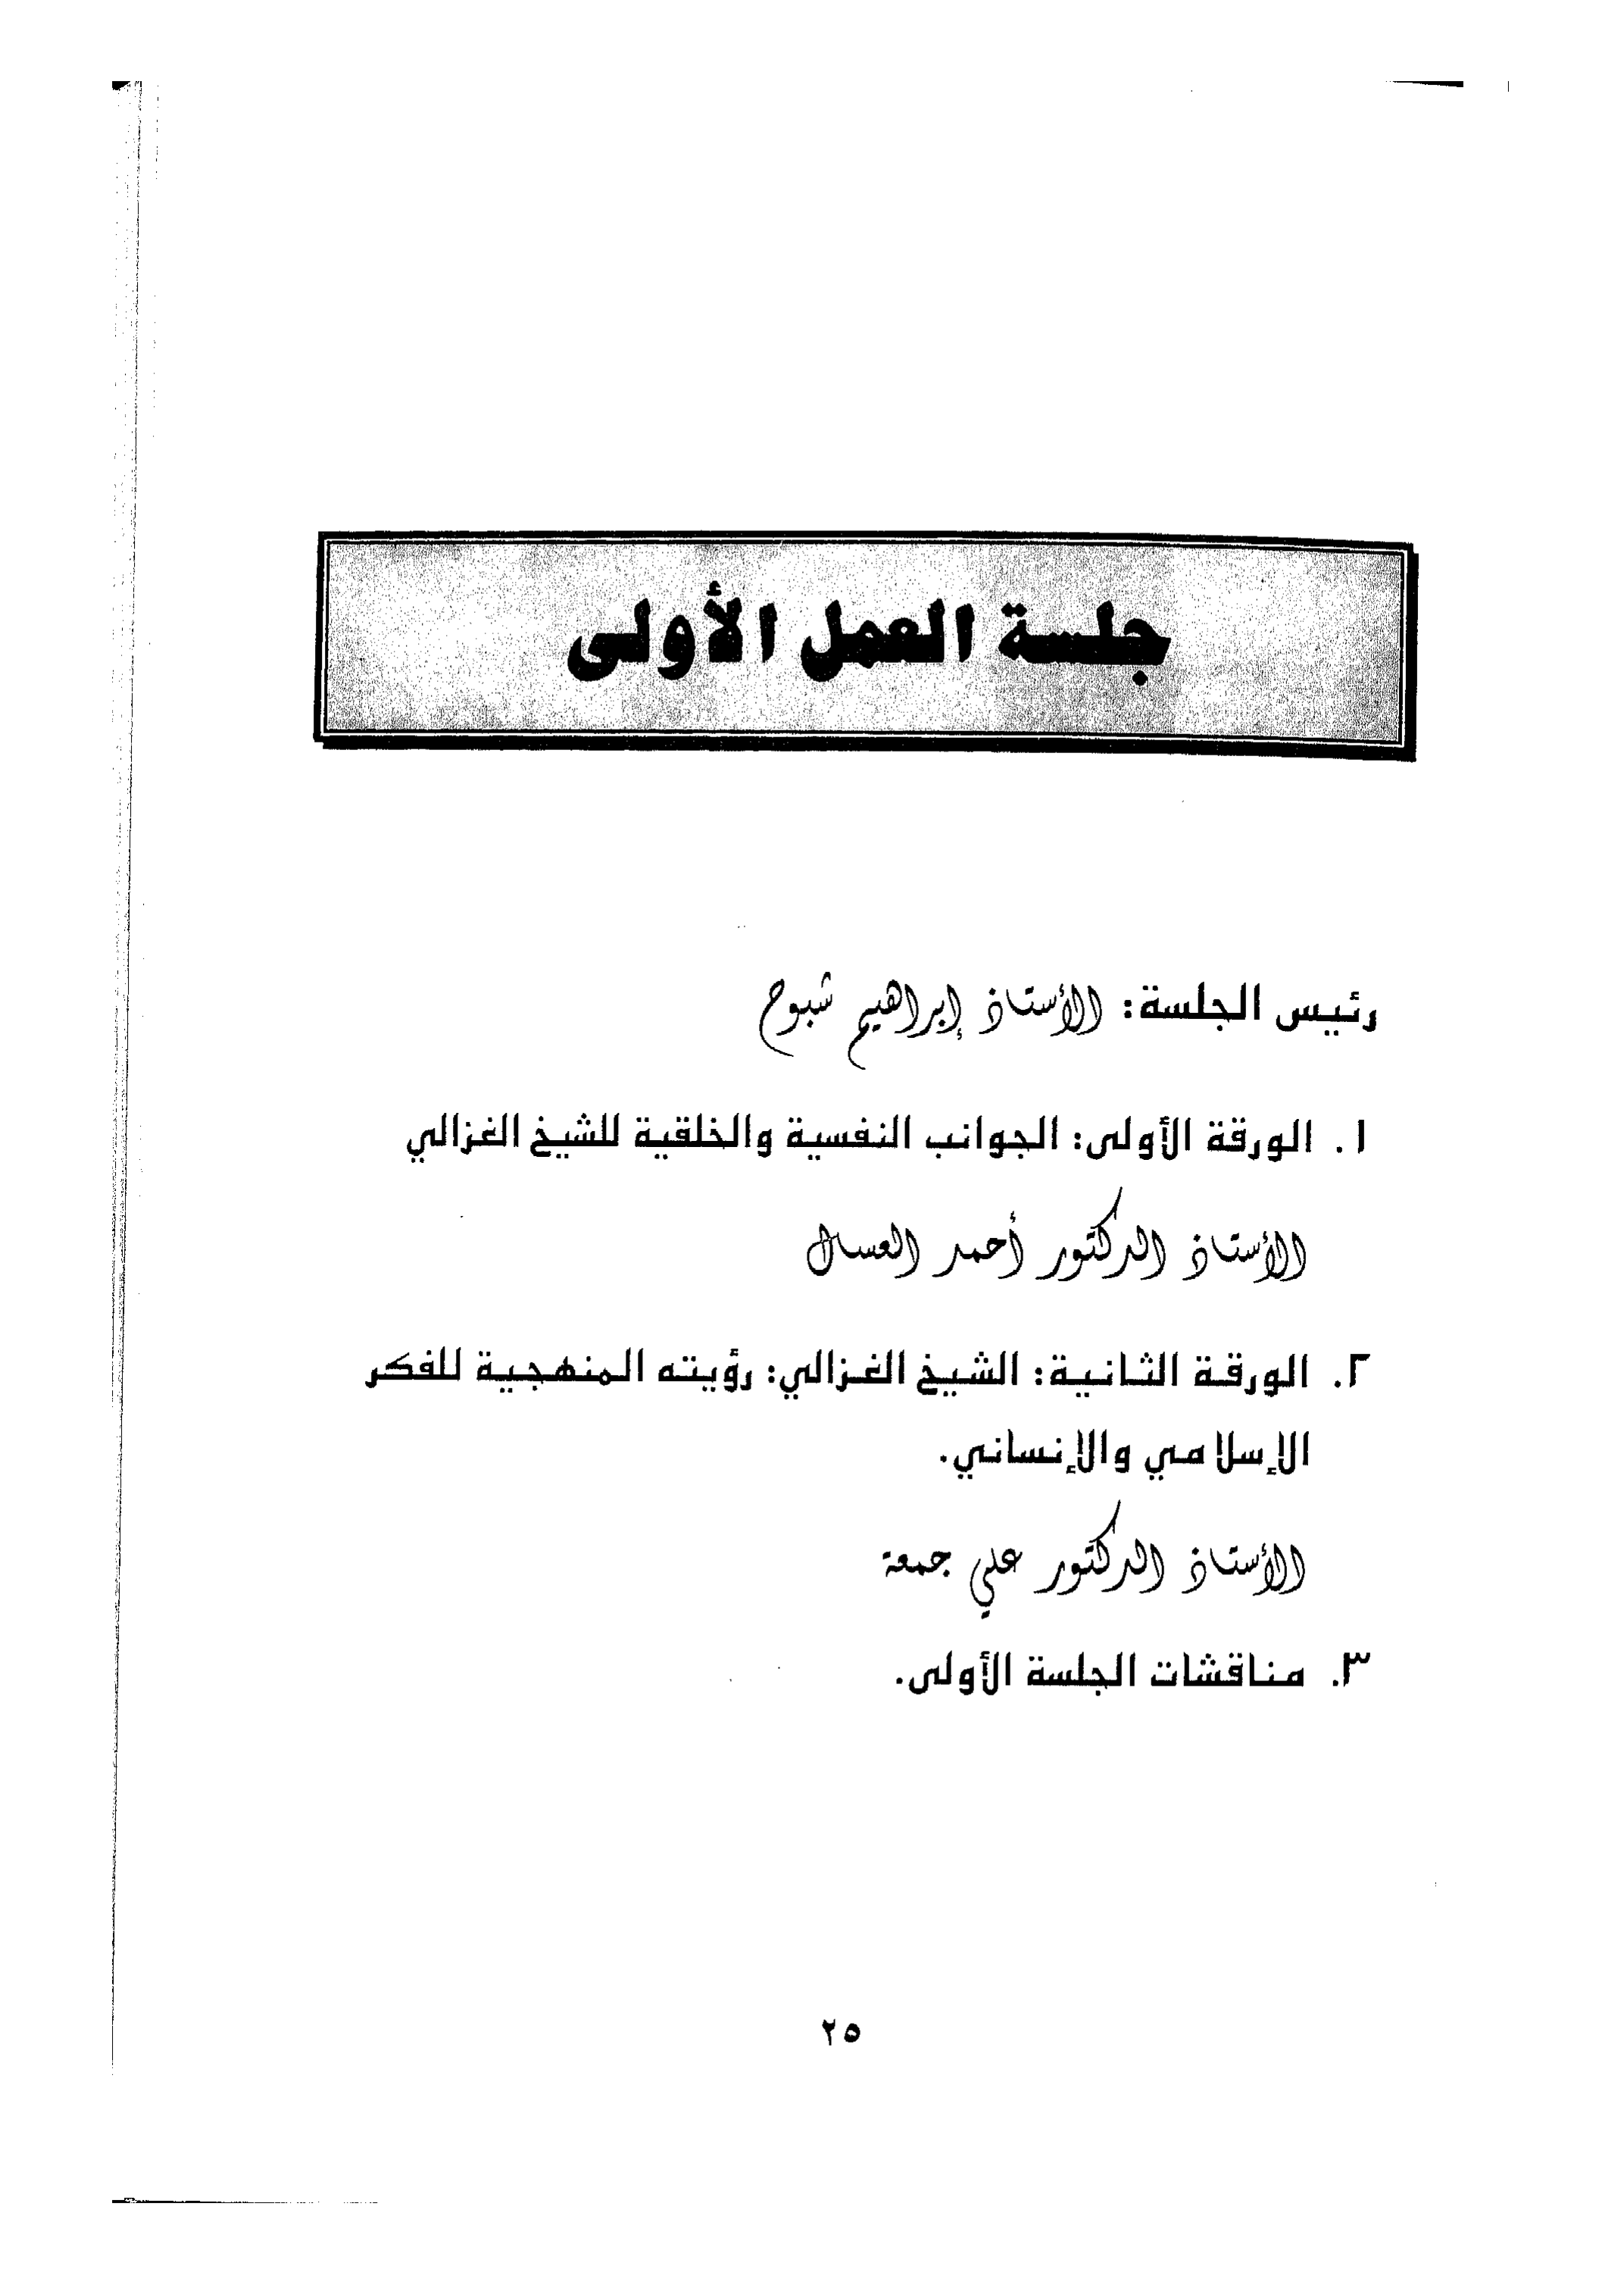 جلسة العمل الأولى
رئيس الجلسة: الأستاذ إبراهيم شبوح
١. الورقة الأولى: الجوانب النفسية والخلقية للشيخ الغزالي
الأستاذ الدكتور أحمد العسال
٢. الورقة الثانية: الشيخ الغزالي: رؤيته المنهجية للفكر
الإسلامي والإنساني.
الأستاذ الدكتور علي جمعة
٣. مناقشات الجلسة الأولى.
٢٥